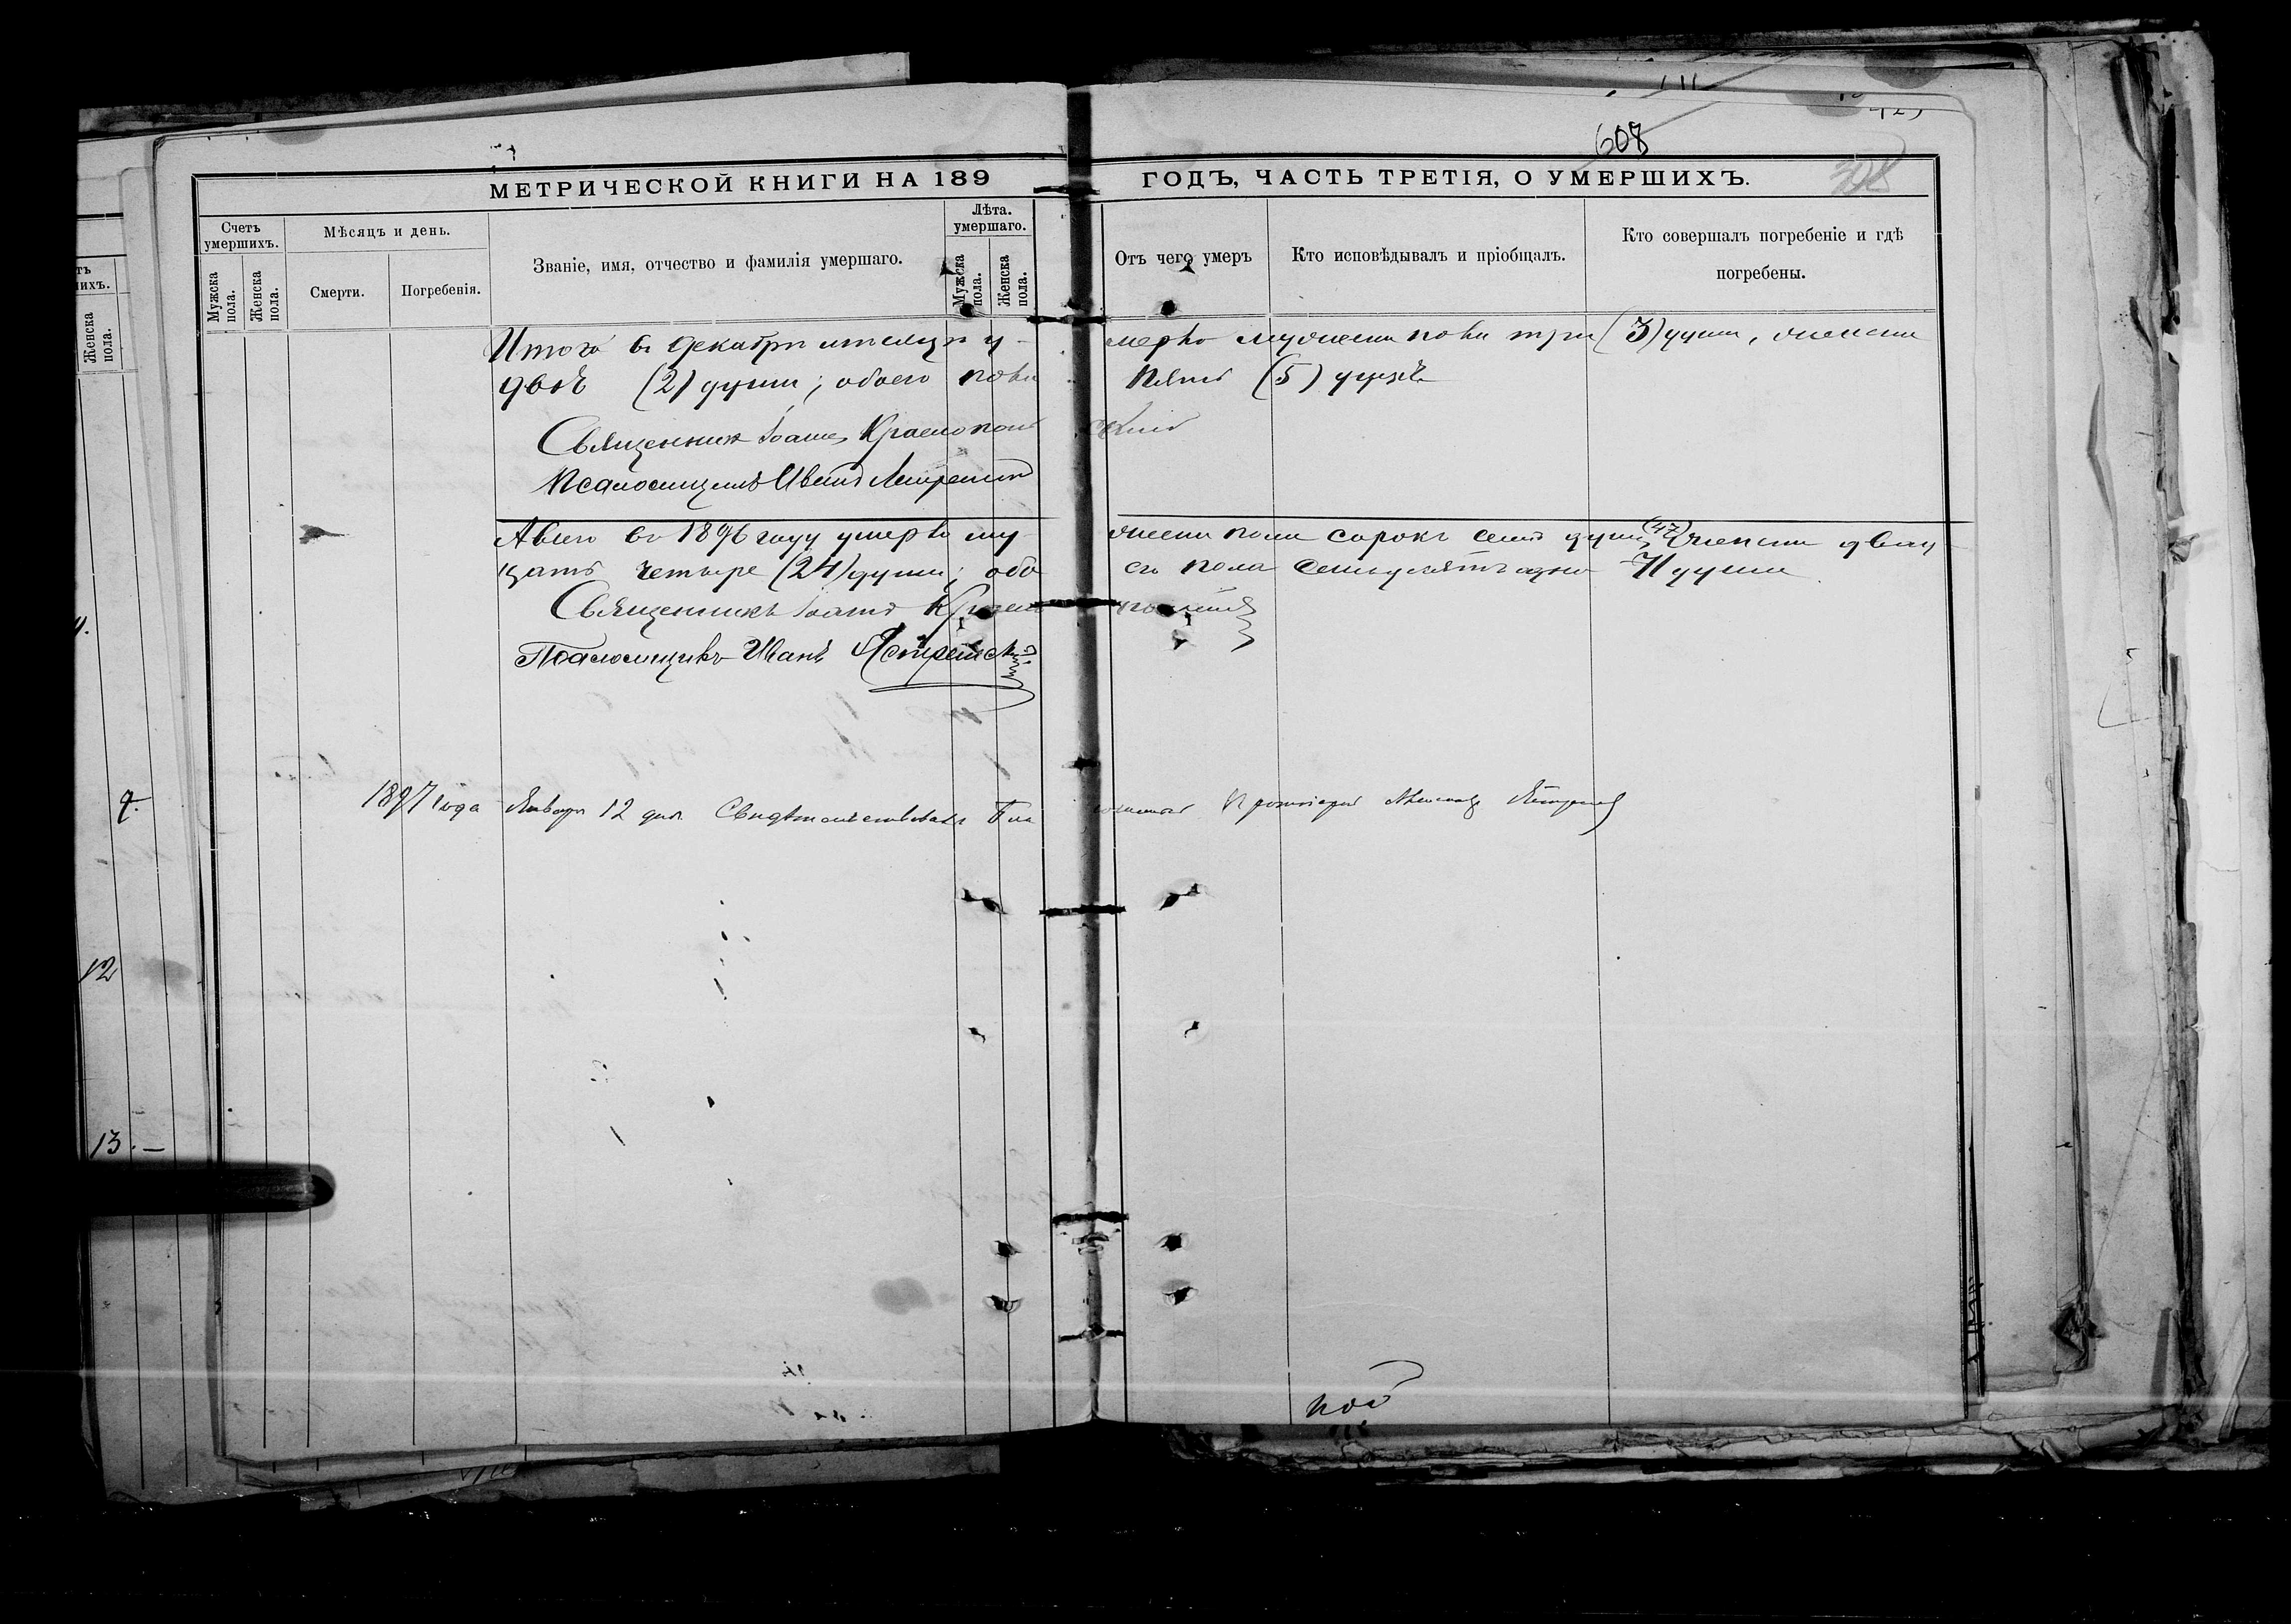 608
308
МЕТРИЧЕСКОЙ КНИГИ НА 189 ГОДЪ, ЧАСТЬ ТРЕТІЯ, О УМЕРШИХЪ.
Счетъ умершихъ.
Мужска пола.
Женска пола.
Мѣсяцъ и день.
Смерти.
Погребенія.
Званіе, имя, отчество и фамилія умершаго.
Лѣта. умершаго.
Мужска пола.
Женска пола.
Отъ чего умеръ
Кто исповѣдывалъ и пріобщалъ.
Кто совершалъ погребеніе и гдѣ погребены.
Итого въ Декабрѣ мѣсяцѣ умерло мужеска пола три (3) души, женска
двѣ (2) души; обоего пола пять (5) душъ
Священникъ Іоаннъ
Псаломщикъ Иванъ
А всего въ 1896 году умерло мужеска пола сорокъ семь душъ (47) женска двад
цать четыре (24) души; обоего пола семьдесятъ одна 71 душа
Священникъ Іоаннъ
Псаломщикъ Иванъ
1897 года Января 12 дня Свидѣтельствовалъ Протоіерей
12
13.